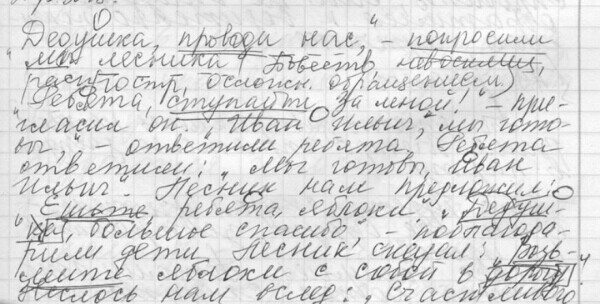 "Дедушка, проводи нас," – попросили
мы лесника (повеств., невосклиц.,
распростр., осложн. обращением)
"Ребята, ступайте за мной!" – при-
гласил он. "Иван Ильич, мы гото-
вы," – ответили ребята. Ребята
ответили: "Мы готовы, Иван
Ильич". Лесник нам предложил:
"Ешьте, ребята, яблоки." "Дедуш-
ка, большое спасибо" – поблагода-
рили дети. Лесник сказал: "Возь-
мите яблоки с собой в дорогу."
Неслось нам вслед: "Счастливо